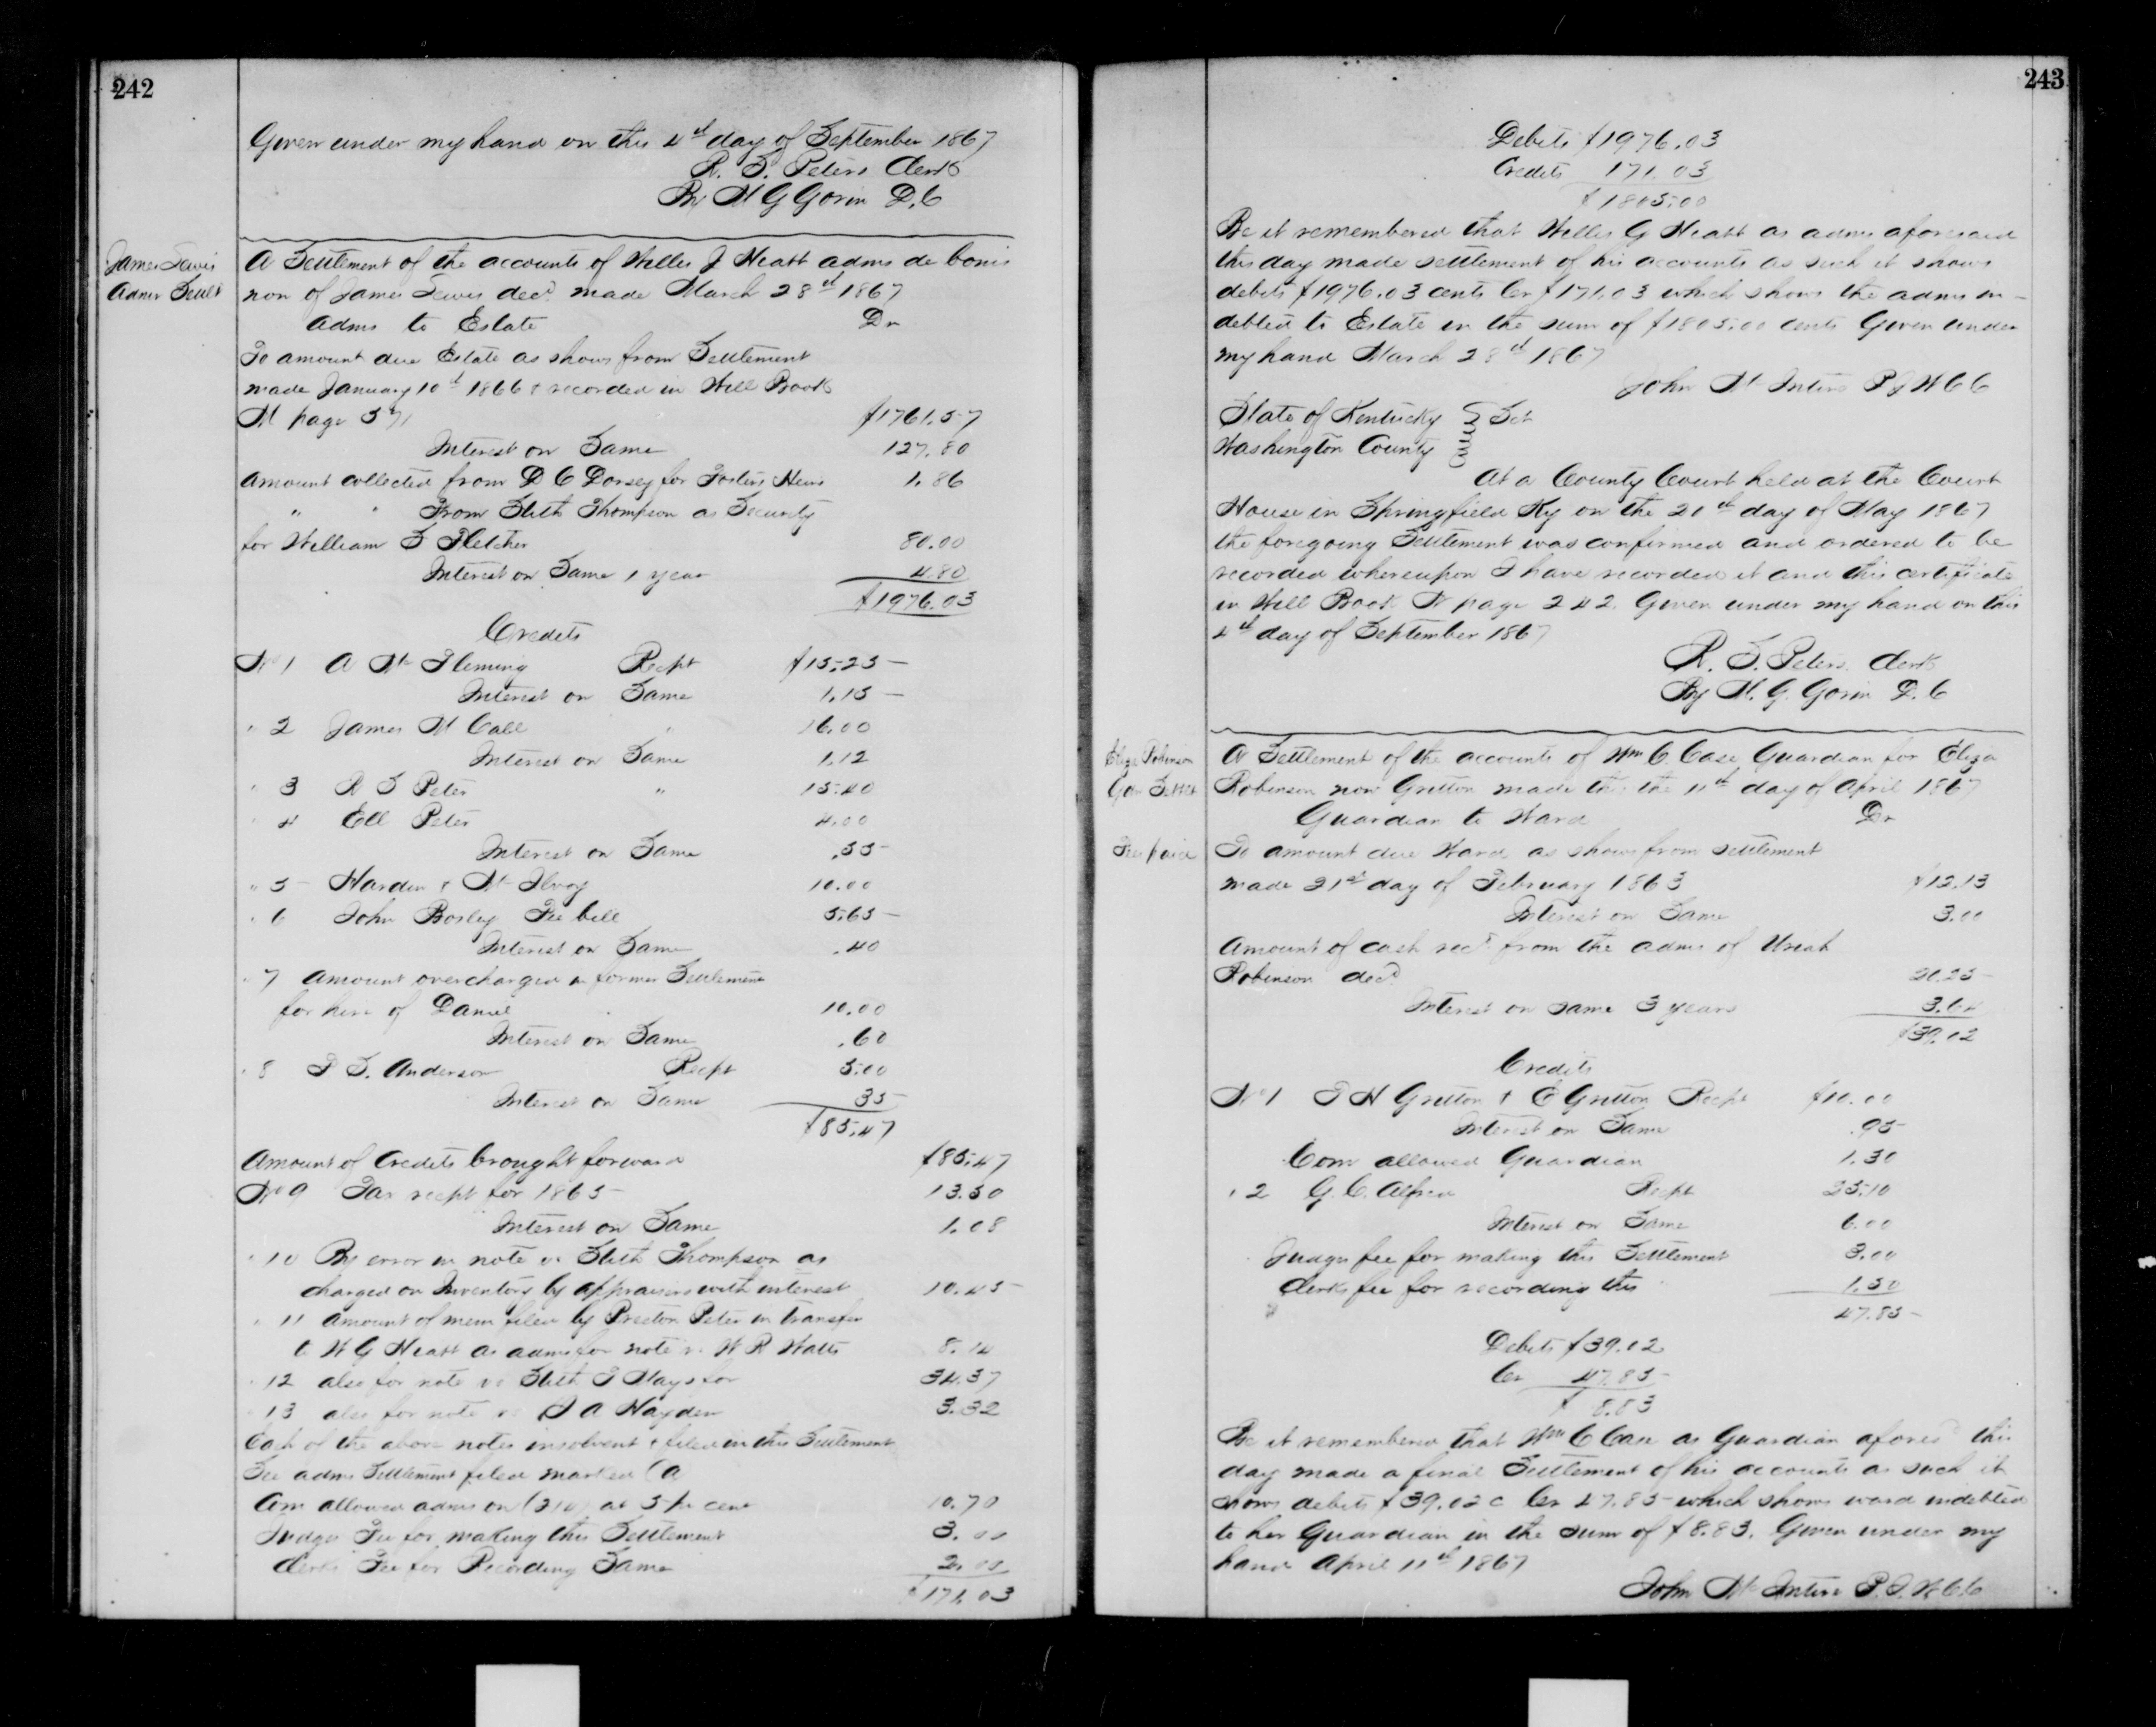 242
Given under my hand on this 4th day of September 1867
R. S. Peters Clerk
By M G Gorin D. C
James Lewis
Admr Settlt
A Settlement of the accounts of Willis J Heatt admr de bonis
non of James Lewis decd. made March 28th 1867
Admr to Estate Dr
To amount due Estate as shows from Settlement
made January 10th 1866 & recorded in Will Book
M page 571 $1761.57
Interest on Same 127.80
Amount collected from D C Dorsey for Fosters Heirs 1.86
" " From Slith Thompson as Security
for William S Fletcher 80.00
Interest on Same 1 year 4.80
$1976.03
Credits
No 1 A Mc Fleming Recpt $15.25
Interest on Same 1.15
" 2 James M Call " 16.00
Interest on Same 1.12
" 3 R S Peter " 15.40
" 4 Ell Peter 4.00
Interest on Same .35
" 5 Hardin & Mc Ilvoy 10.00
" 6 John Bosley Fee bill 5.65
Interest on Same .40
" 7 Amount overcharged in former Settlement
for hire of Daniel 10.00
Interest on Same .60
" 8 S. Anderson Recpt 5.00
Interest on Same 35
$85.47
Amount of Credits brought forward $85.47
No 9 Tax recpt for 1865 13.50
Interest on Same 1.08
" 10 By error in note vs Slith Thompson as
charged on Inventory by appraisers with interest 10.45
" 11 Amount of mem filed by Preston Peter in transfer
to W G Heatt as admr for note vs W R Watts 8.14
" 12 also for note vs Slith T Mays for 34.37
" 13 also for note vs A Hayden 3.32
Each of the above notes insolvent & filed in this Settlement
See admr Settlement filed marked (A
Com allowed admr on (214) at 5 pr cent 10.70
Judges Fee for making this Settlement 3.00
Clerks Fee for Recording Same 2.00
$171.03
243
Debits $1976.03
Credits 171.03
$1805.00
Be it remembered that Willis G Heatt as admr aforesaid
this day made settlement of his accounts as such it shows
debits $1976.03 cents Cr $171.03 which shows the admr in-
debted to Estate in the sum of $1805.00 cents Given under
my hand March 28th 1867
John Mc Intire P J W C C
State of Kentucky } Sct
Washington County
At a County Court held at the Court
House in Springfield Ky on the 20th day of May 1867
the foregoing Settlement was confirmed and ordered to be
recorded whereupon I have recorded it and this certificate
in Will Book N page 242. Given under my hand on this
4th day of September 1867
R. S. Peters. Clerk
By M. G. Gorin D. C
Eliza Robinson
Gdn Settlt
Fees paid
A Settlement of the accounts of Wm C. Case Guardian for Eliza
Robinson now Gritton made this the 11th day of April 1867
Guardian to Ward Dr
To amount due Ward as shows from settlement
made 21st day of February 1863 $12.13
Interest on Same 3.00
Amount of cash recd from the admr of Uriah
Robinson decd 20.25
Interest on same 3 years 3.64
$39.02
Credits
No 1 T H Gritton & E Gritton Recpt $10.00
Interest on Same .95
Com allowed Guardian 1.30
" 2 G. C. Alfred Recpt 25.10
Interest on Same 6.00
Judges fee for making this Settlement 3.00
Clerks fee for recording this 1.50
47.85
Debits $39.02
Cr 47.85
$ 8.83
Be it remembered that Wm C Case as Guardian aforesd this
day made a final Settlement of his accounts as such it
shows debits $39.02 c Cr 47.85 which shows ward indebted
to her Guardian in the sum of $8.83. Given under my
hand April 11th 1867
John Mc Intire P. J. W C. C